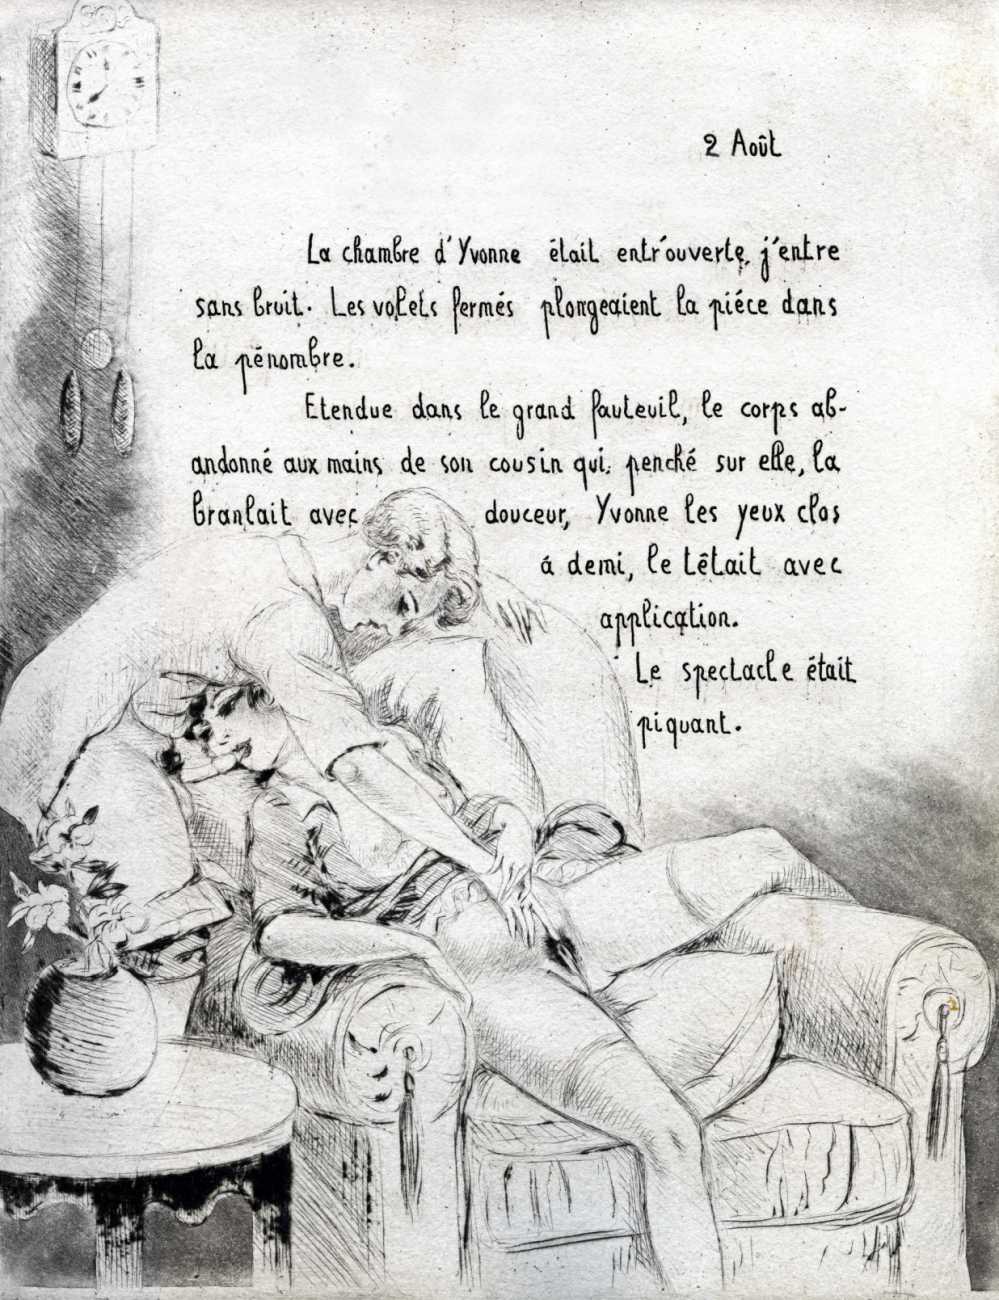 2 Août
La chambre d'Yvonne était entr'ouverte, j'entre
sans bruit. Les volets fermés plongeaient la piéce dans
la pénombre.
Etendue dans le grand fauteuil, le corps ab-
andonné aux mains de son cousin qui, penché sur elle, la
branlait avec douceur, Yvonne les yeux clos
á demi, le têtait avec
application.
Le spectacle était
piquant.